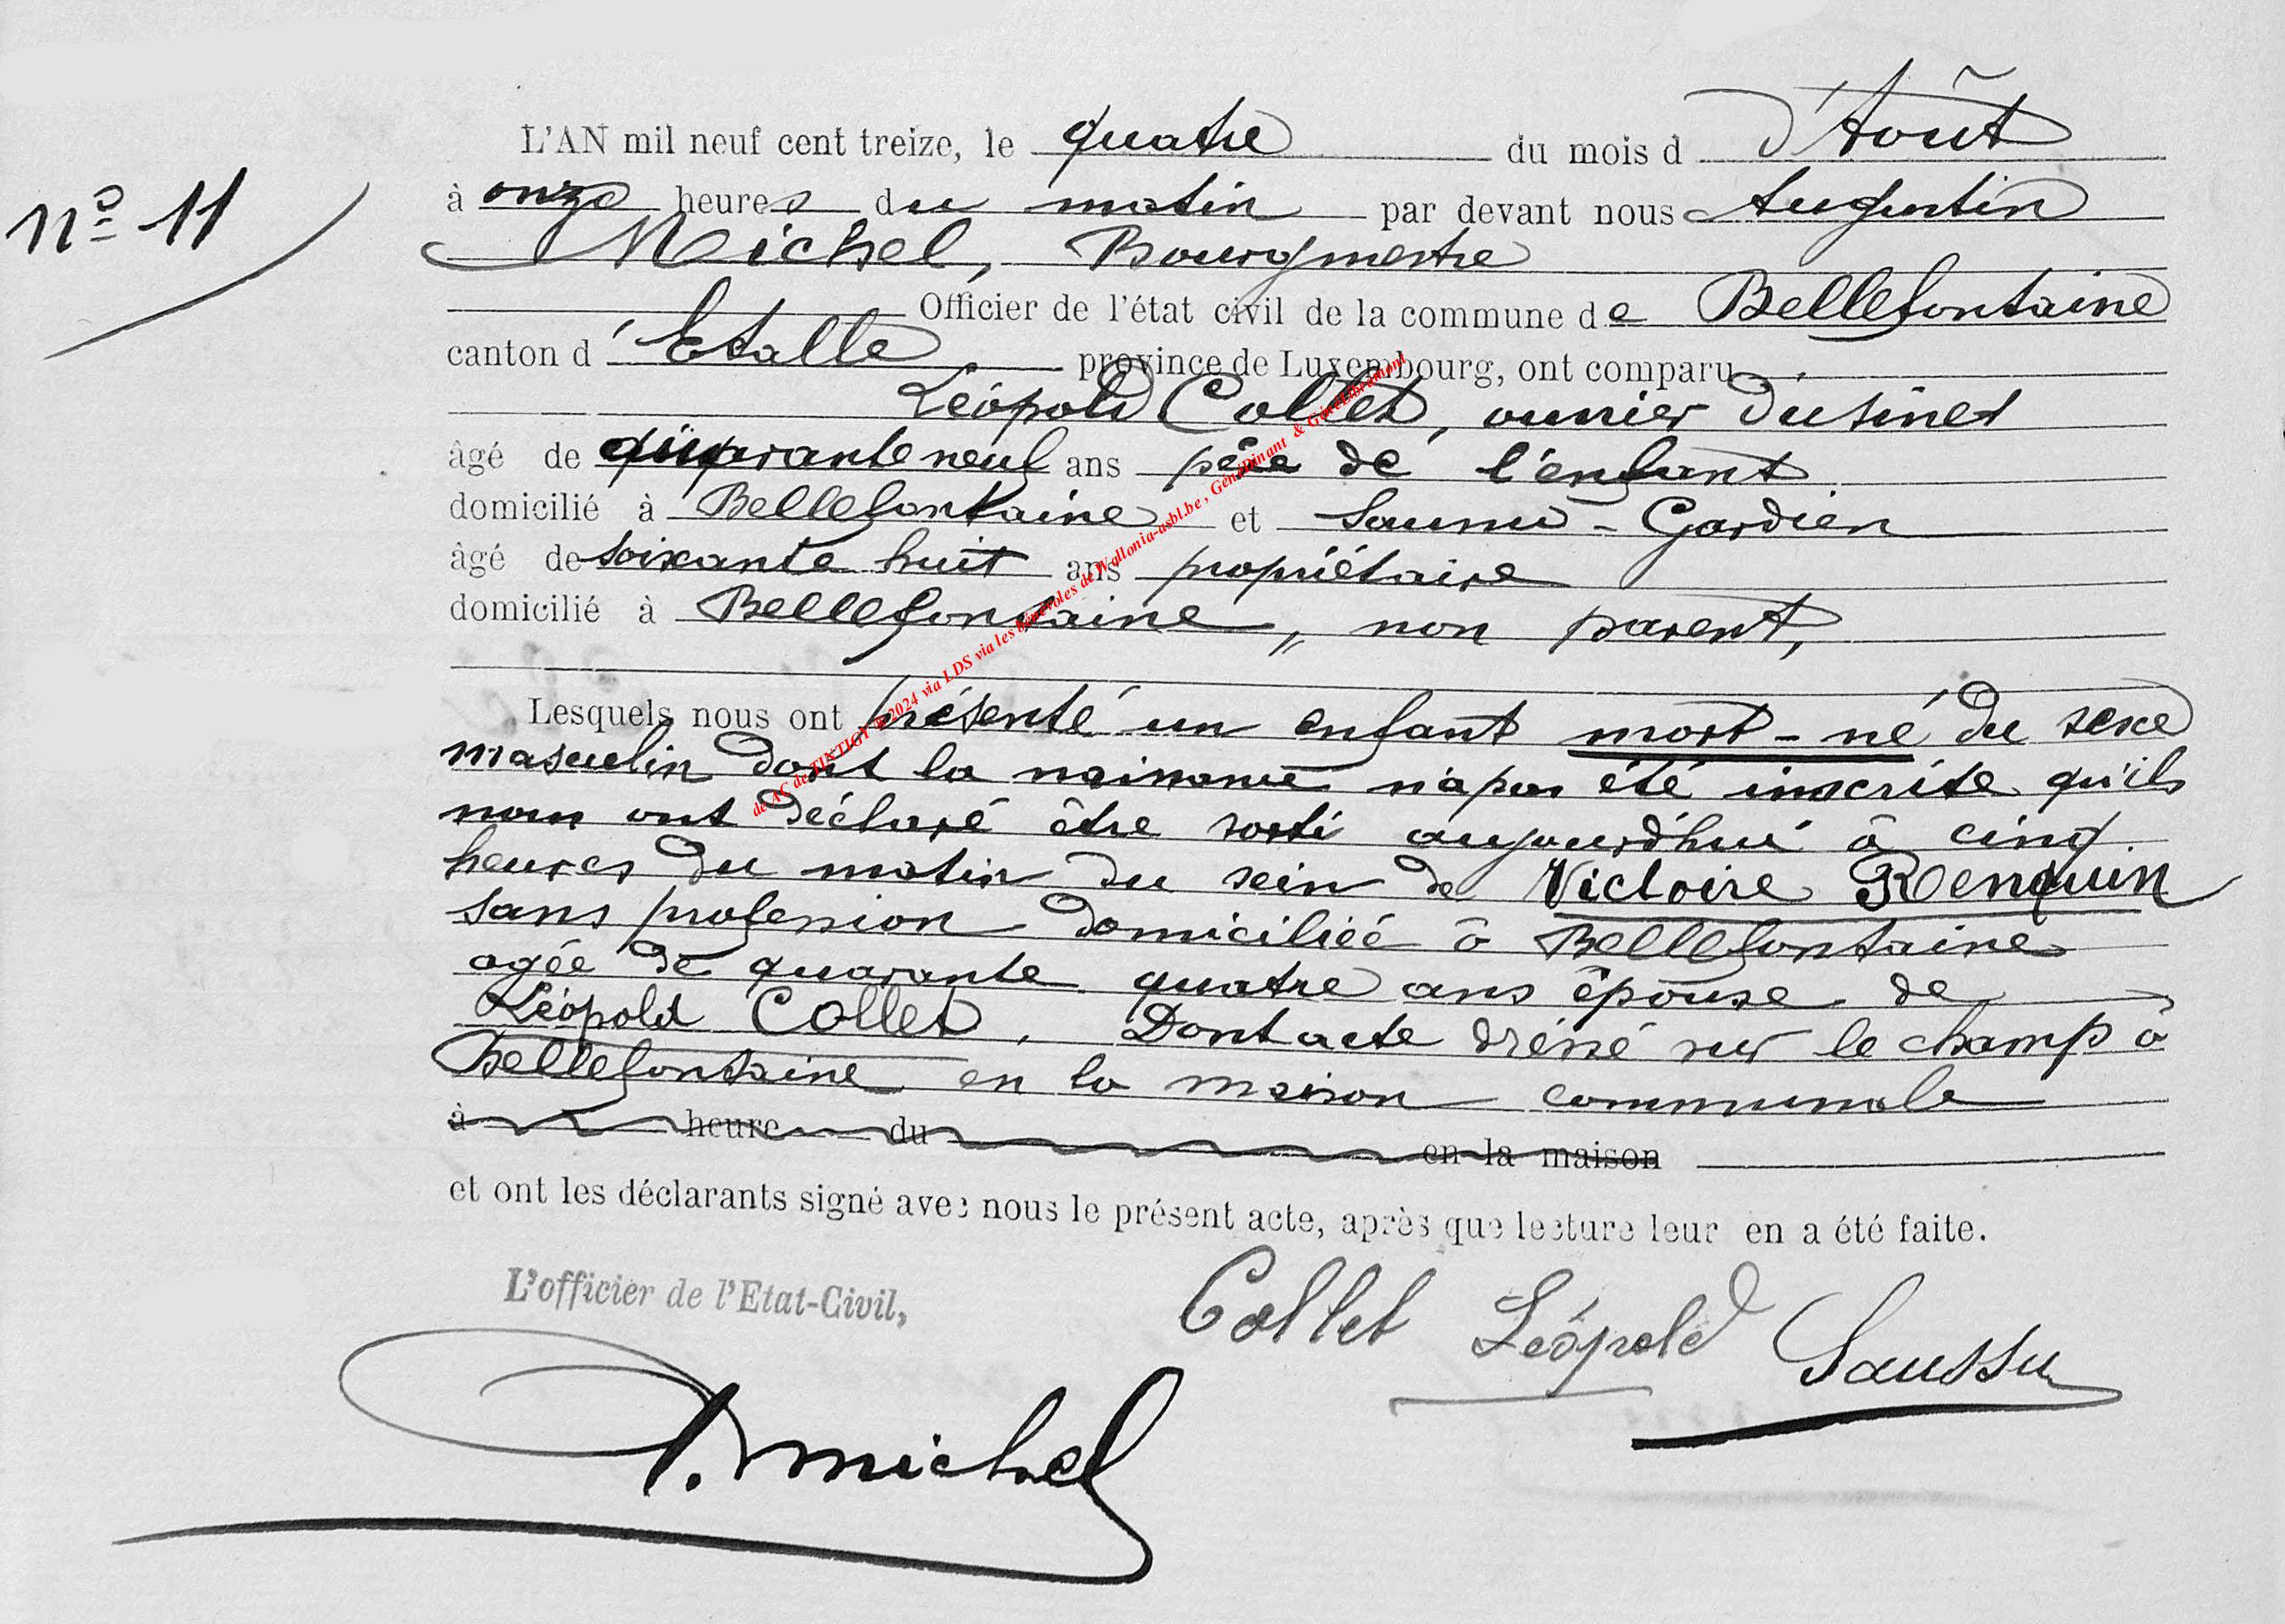 L'AN mil neuf cent treize, le quatre du mois d d'Août
N° 11
à onze heures du matin par devant nous Augustin
Michel, Bourgmestre
Officier de l'état civil de la commune de Bellefontaine
canton d'Etalle province de Luxembourg, ont comparu
Léopold Collet, ouvrier d'usines
âgé de quarante neuf ans père de l'enfant
domicilié à Bellefontaine et Saussu - Gardien
âgé de soixante huit ans propriétaire
domicilié à Bellefontaine, non parent,
Lesquels nous ont présenté un enfant mort-né du sexe
masculin dont la naissance n'a pas été inscrite qu'ils
nous ont déclaré être sorti aujourd'hui à cinq
heures du matin du sein de Victoire Renquin
sans profession domiciliée à Bellefontaine
agée de quarante quatre ans épouse de
Léopold Collet. Dont acte dressé sur le champ à
Bellefontaine en la maison communale
à heure du en la maison
et ont les déclarants signé avec nous le présent acte, après que lecture leur en a été faite.
L'officier de l'Etat-Civil,
Collet Léopold Saussu
A. Michel
de AC de TINTIGY © 2024 via LDS via les bénévoles de Wallonia-asbl.be, GénéDinant & GénéLibramont